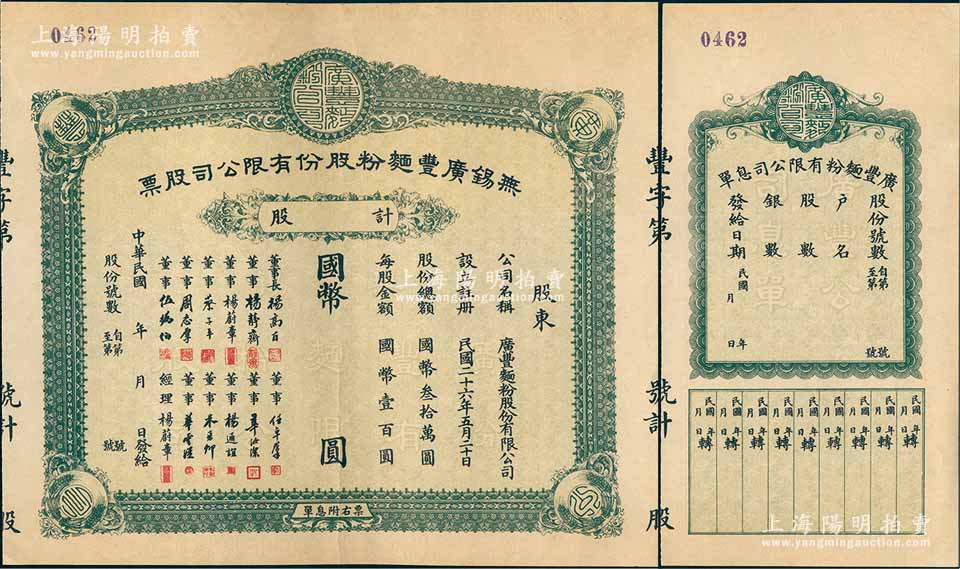 0462
上海陽明拍賣
www.yangmingauction.com
無錫廣豐麵粉股份有限公司股票
計 股
股東
公司名稱 廣豐麵粉股份有限公司
設立註冊 民國二十六年五月二十日
股份總額 國幣叁拾萬圓
每股金額 國幣壹百圓
國幣 圓
董事長 楊
董事 楊靜齋 董事
董事 楊蔚章 董事 楊通
董事 蔡子平 董事
董事 周志厚 董事
董事 伍 伯 經理 楊蔚章
中華民國 年 月 日發給
股份號數 自第 號
至第 號
票右附息單
豐字第 號計 股
豐字第 號計 股
0462
廣豐麵粉有限公司息單
股份號數 自第 號
至第 號
户名
股數
銀數
發給日期 民國 年 月 日
民國 年 月 日轉
民國 年 月 日轉
民國 年 月 日轉
民國 年 月 日轉
民國 年 月 日轉
民國 年 月 日轉
民國 年 月 日轉
民國 年 月 日轉
上海陽明拍賣
www.yangmingauction.com
上海陽明拍賣
www.yangmingauction.com